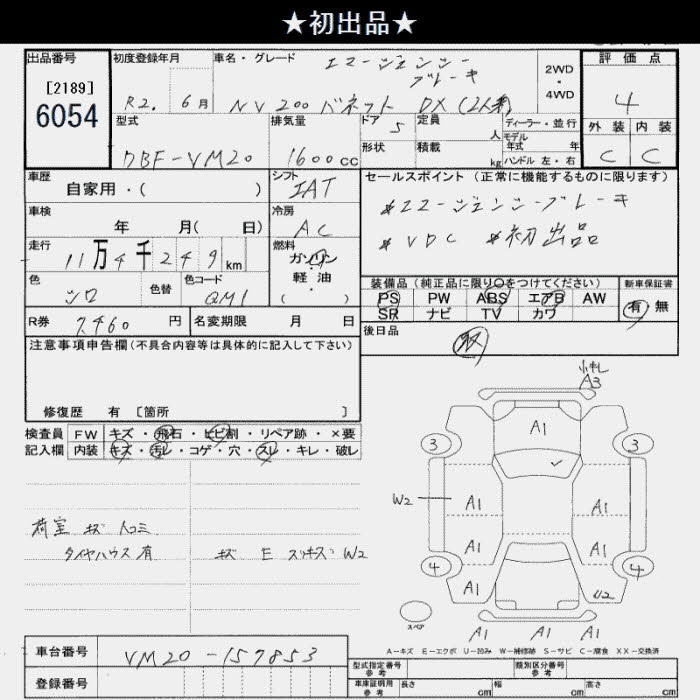 ★初出品★
出品番号 初度登録年月 車名・グレード エマージェンシー 2WD 評価点
[2189] ブレーキ ・
6054 R2. 6月 NV200バネット DX(2人乗) 4WD 4
型式 排気量 ドア 5 定員 人 ディーラー・並行 外装 内装
モデル年式 年
DBF-VM20 1600cc 形状 積載 kg ハンドル 左・右 C C
車歴 シフト セールスポイント (正常に機能するものに限ります)
自家用・( ) IAT *エマージェンシーブレーキ
車検 年 月( 日) 冷房 AC *VDC *初出品
走行 11万4千249km 燃料 ガソリン
色 シロ 色替 色コード QM1 軽・油
( )
装備品(純正品に限り○をつけてください) 新車保証書
PS PW ABS エアB AW 有 無
SR ナビ TV カワ
R券 7,460円 名変期限 月 日 後日品
注意事項申告欄(不具合内容等は具体的に記入して下さい)
修復歴 有 [箇所 ]
検査員 FW キズ・飛石・ヒビ割・リペア跡・×要
記入欄 内装 キズ・汚レ・コゲ・穴・スレ・キレ・破レ
A3
A1
3 3
W2 A1 A1
A1 A1
4 4
A1 W2
A1 A1 A1
スペア
荷室 キズ 凹コミ
タイヤハウス有 キズ E スリキズ W2
A-キズ E-エクボ U-凹み W-補修跡 S-サビ C-腐食 XX-交換済
車台番号 VM20-157853
登録番号
型式指定番号 参考 類別区分番号 参考
車庫証明用 参考 長さ cm 幅 cm 高さ cm